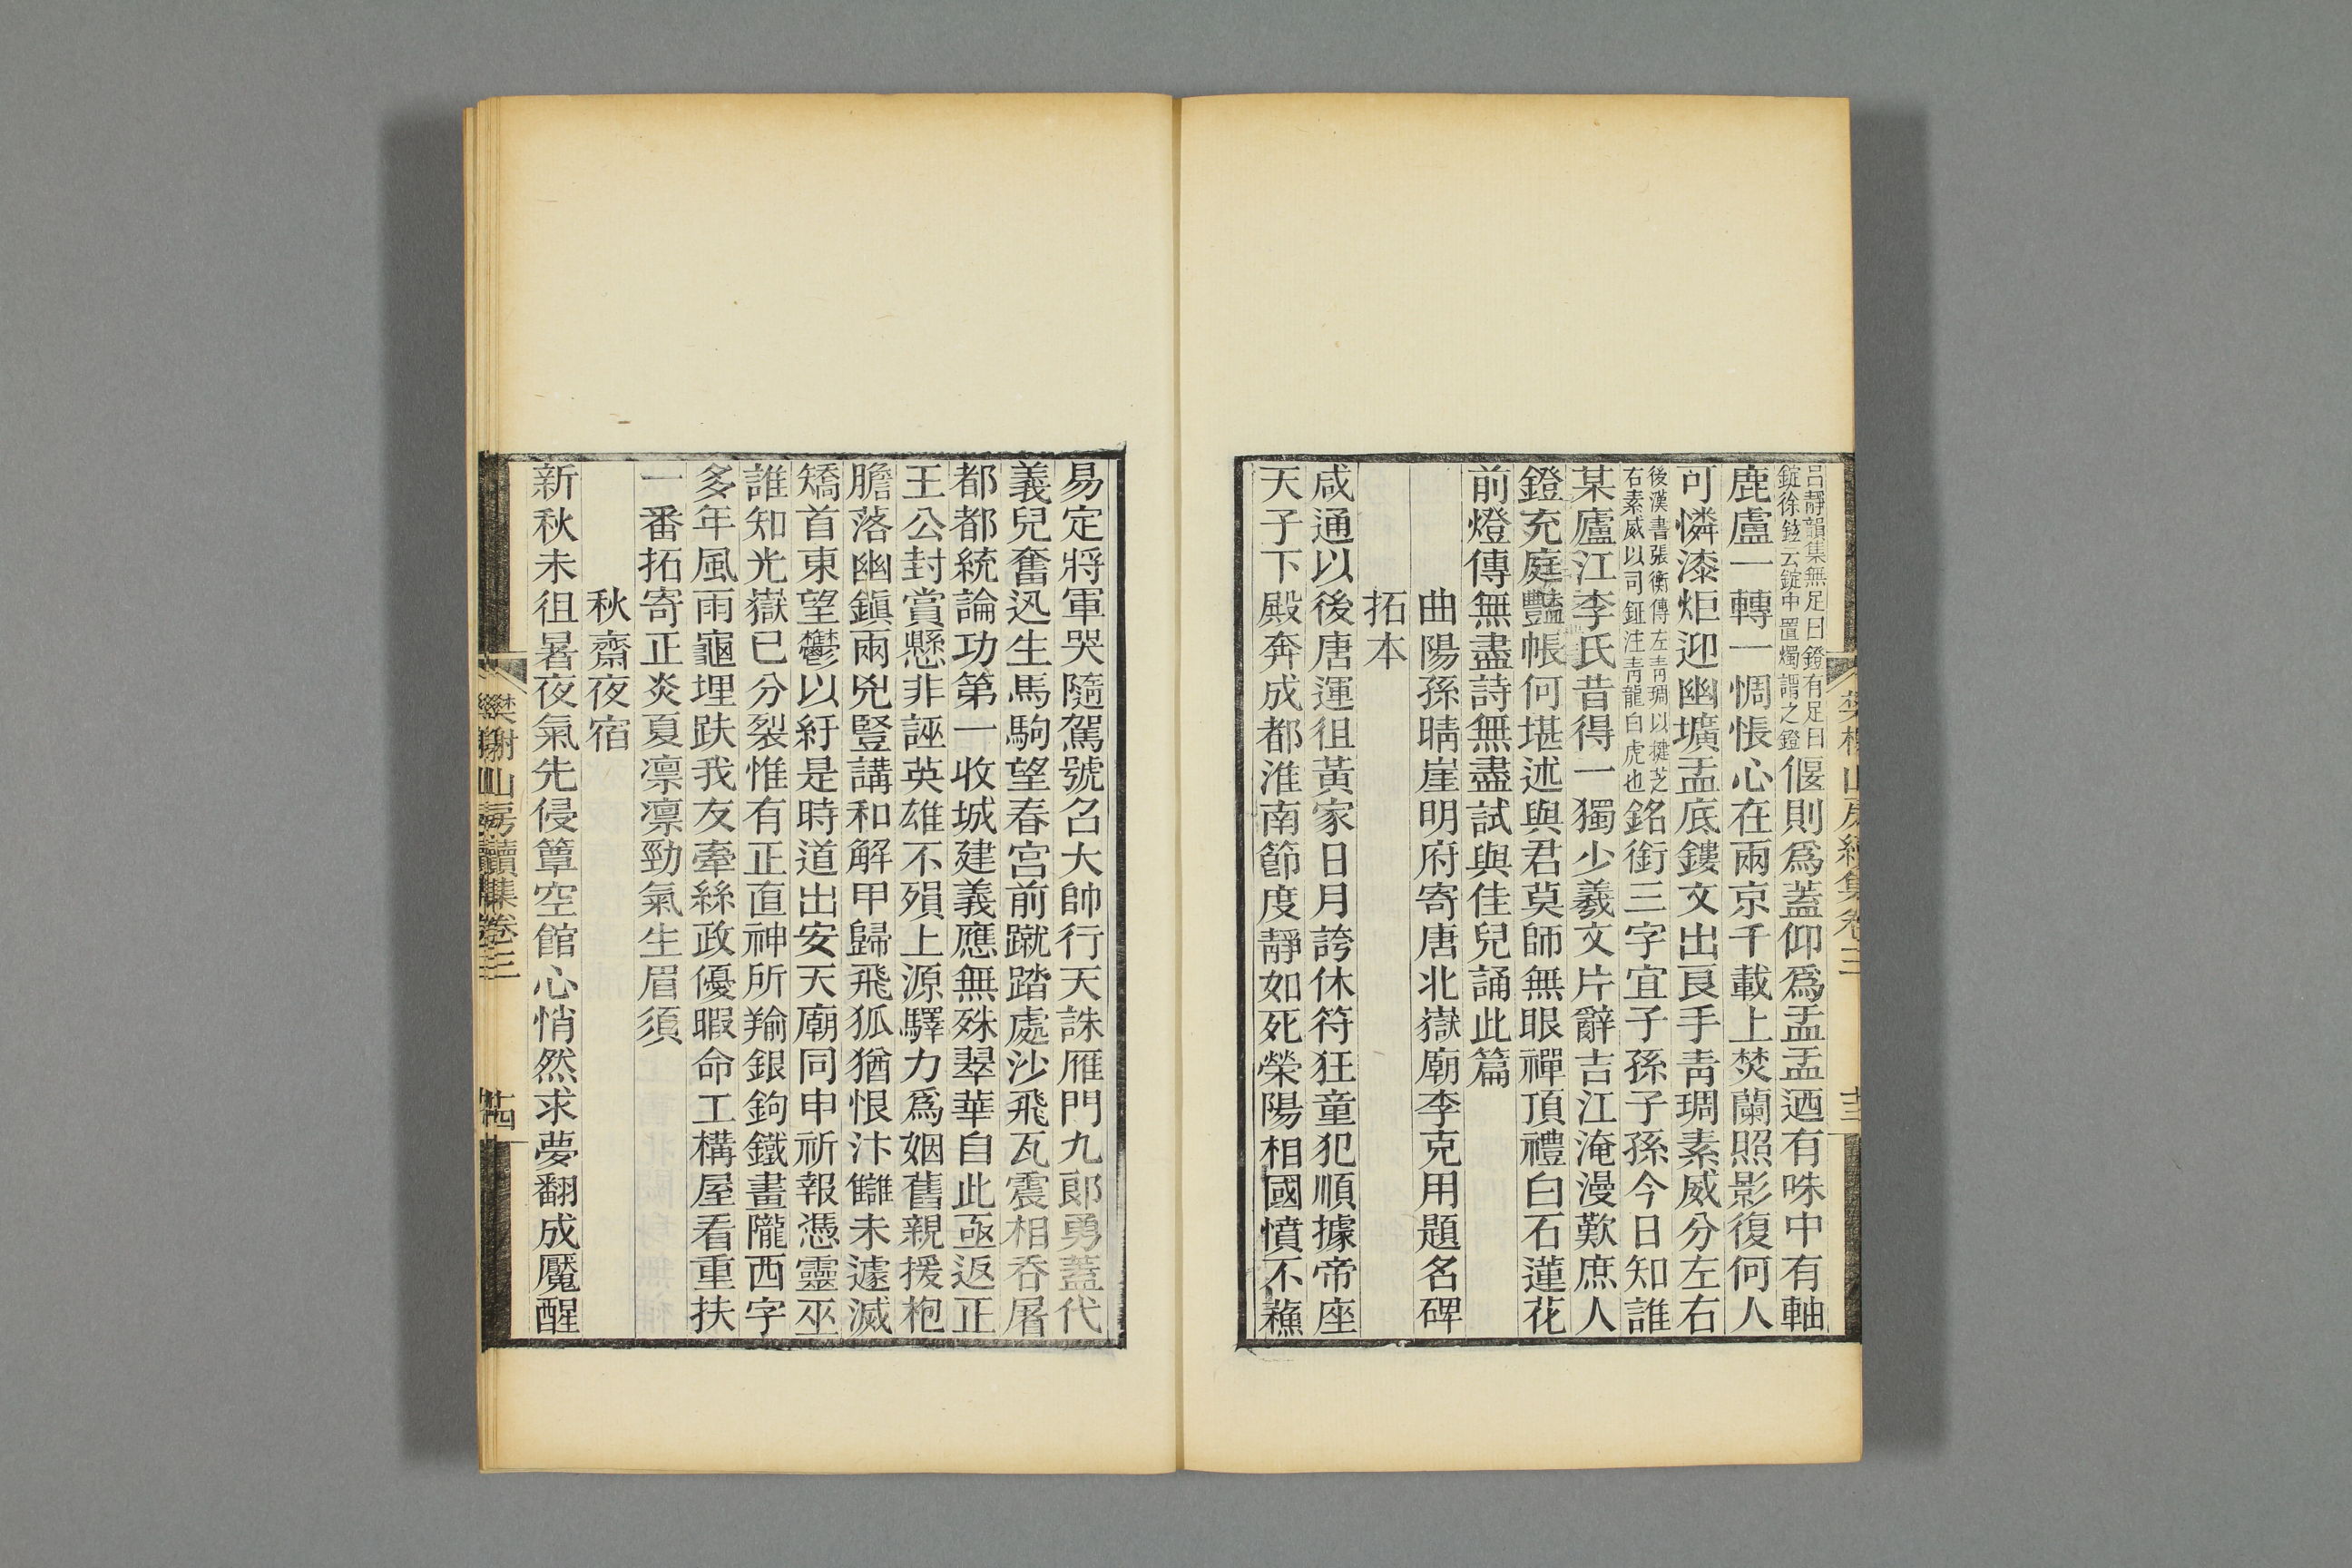 呂靜韻集無足曰鐙有足曰
錠徐鉉云錠中置燭謂之鐙
偃則爲蓋仰爲盂盂迺有咮中有軸
鹿盧一轉一惆悵心在兩京千載上焚蘭照影復何人
可憐漆炬迎幽壙盂底鏤文出良手靑琱素威分左右
後漢書張衡傳左靑琱以揵芝
右素威以司鉦注靑龍白虎也
銘銜三字宜子孫子孫今日知誰
某廬江李氏昔得一獨少羲文片辭吉江淹漫歎庶人
鐙充庭豔帳何堪述與君莫師無眼禪頂禮白石蓮花
前燈傳無盡詩無盡試與佳兒誦此篇
曲陽孫晴崖明府寄唐北嶽廟李克用題名碑
拓本
咸通以後唐運徂黃家日月誇休符狂童犯順據帝座
天子下殿奔成都淮南節度靜如死滎陽相國憤不蘓
易定將軍哭隨駕號召大帥行天誅雁門九郎勇蓋代
義兒奮迅生馬駒望春宮前蹴踏處沙飛瓦震相呑屠
都都統論功第一收城建義應無殊翠華自此亟返正
王公封賞懸非誣英雄不殞上源驛力爲姻舊親援枹
膽落幽鎭兩兇豎講和解甲歸飛狐猶恨汴讎未遽滅
矯首東望鬱以紆是時道出安天廟同申祈報憑靈巫
誰知光嶽已分裂惟有正直神所羭銀鉤鐵畫隴西字
多年風雨龜埋趺我友牽絲政優暇命工構屋看重扶
一番拓寄正炎夏凛凛勁氣生眉須
秋齋夜宿
新秋未徂暑夜氣先侵簟空館心悄然求夢翻成魘醒
樊榭山房續集卷三
十四